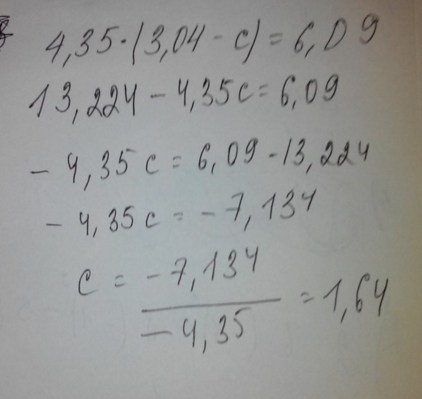 4,35·(3,04 - c) = 6,09
13,224 - 4,35c = 6,09
- 4,35c = 6,09 - 13,224
- 4,35c = - 7,134
c = -7,134 / -4,35 = 1,64